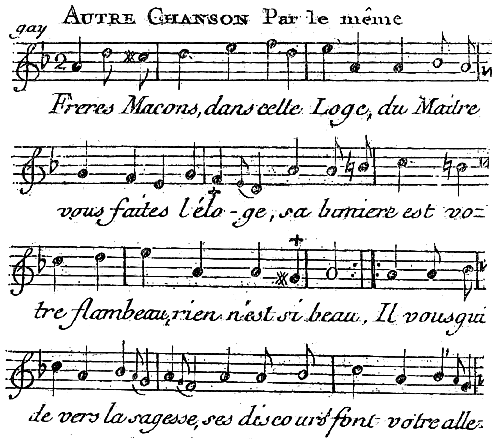 AUTRE CHANSON Par le même
gay
2
Freres Macons, dans cette Loge, du Maitre
vous faites l'élo-ge, sa lumiere est vo-
tre flambeau, rien n'est si beau, Il vous gui
de vers la sagesse, ses discours font votre alle-